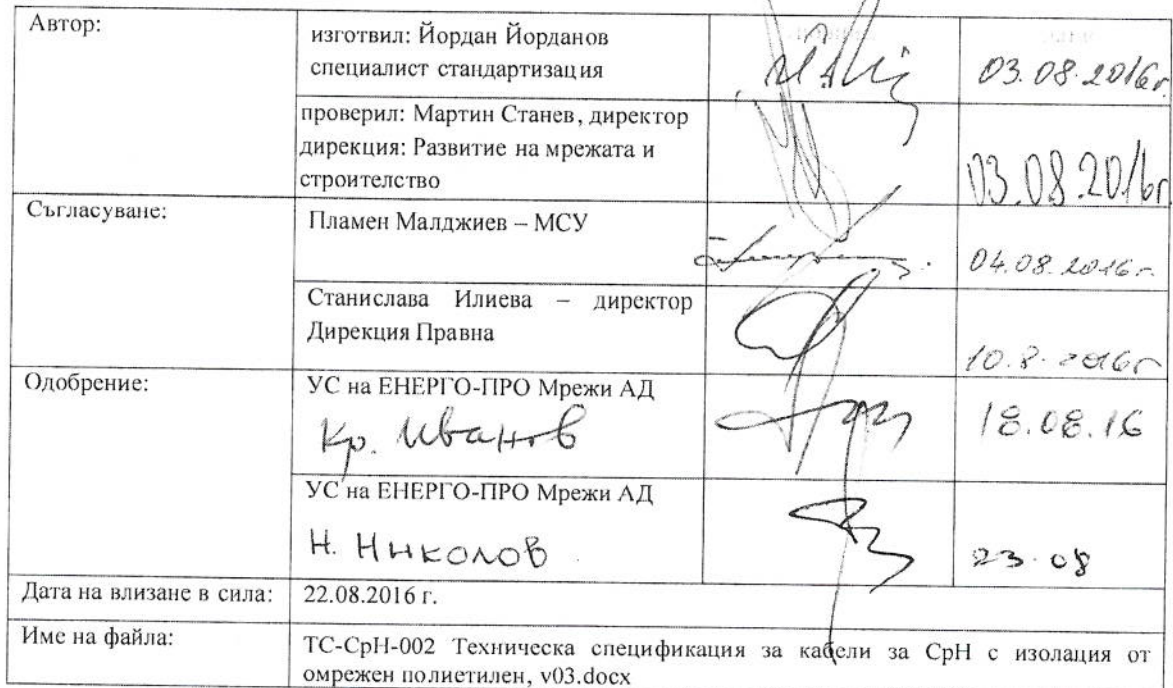 Автор:
изготвил: Йордан Йорданов
специалист стандартизация
03.08.2016г.
проверил: Мартин Станев, директор
дирекция: Развитие на мрежата и
строителство
03.08.2016г
Съгласуване:
Пламен Малджиев – МСУ
04.08.2016г
Станислава Илиева – директор
Дирекция Правна
10.8.2016г
Одобрение:
УС на ЕНЕРГО-ПРО Мрежи АД
Кр. Иванов
18.08.16
УС на ЕНЕРГО-ПРО Мрежи АД
Н. Николов
23.08
Дата на влизане в сила:
22.08.2016 г.
Име на файла:
ТС-СрН-002 Техническа спецификация за кабели за СрН с изолация от
омрежен полиетилен, v03.docx